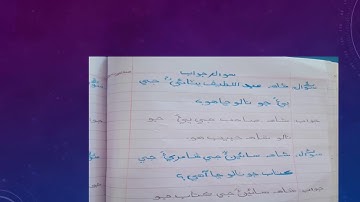 سوال جواب
سوال: شاهه عبداللطيف ڀٽائيءَ جي
پيءُ جو نالو ڇا هو؟
جواب: شاهه صاحب جي پيءُ جو
نالو شاهه حبيب هو.
سوال: شاهه سائينءَ جي شاعريءَ جي
ڪتاب جو نالو ڇا آهي؟
جواب: شاهه سائينءَ جي ڪتاب جو